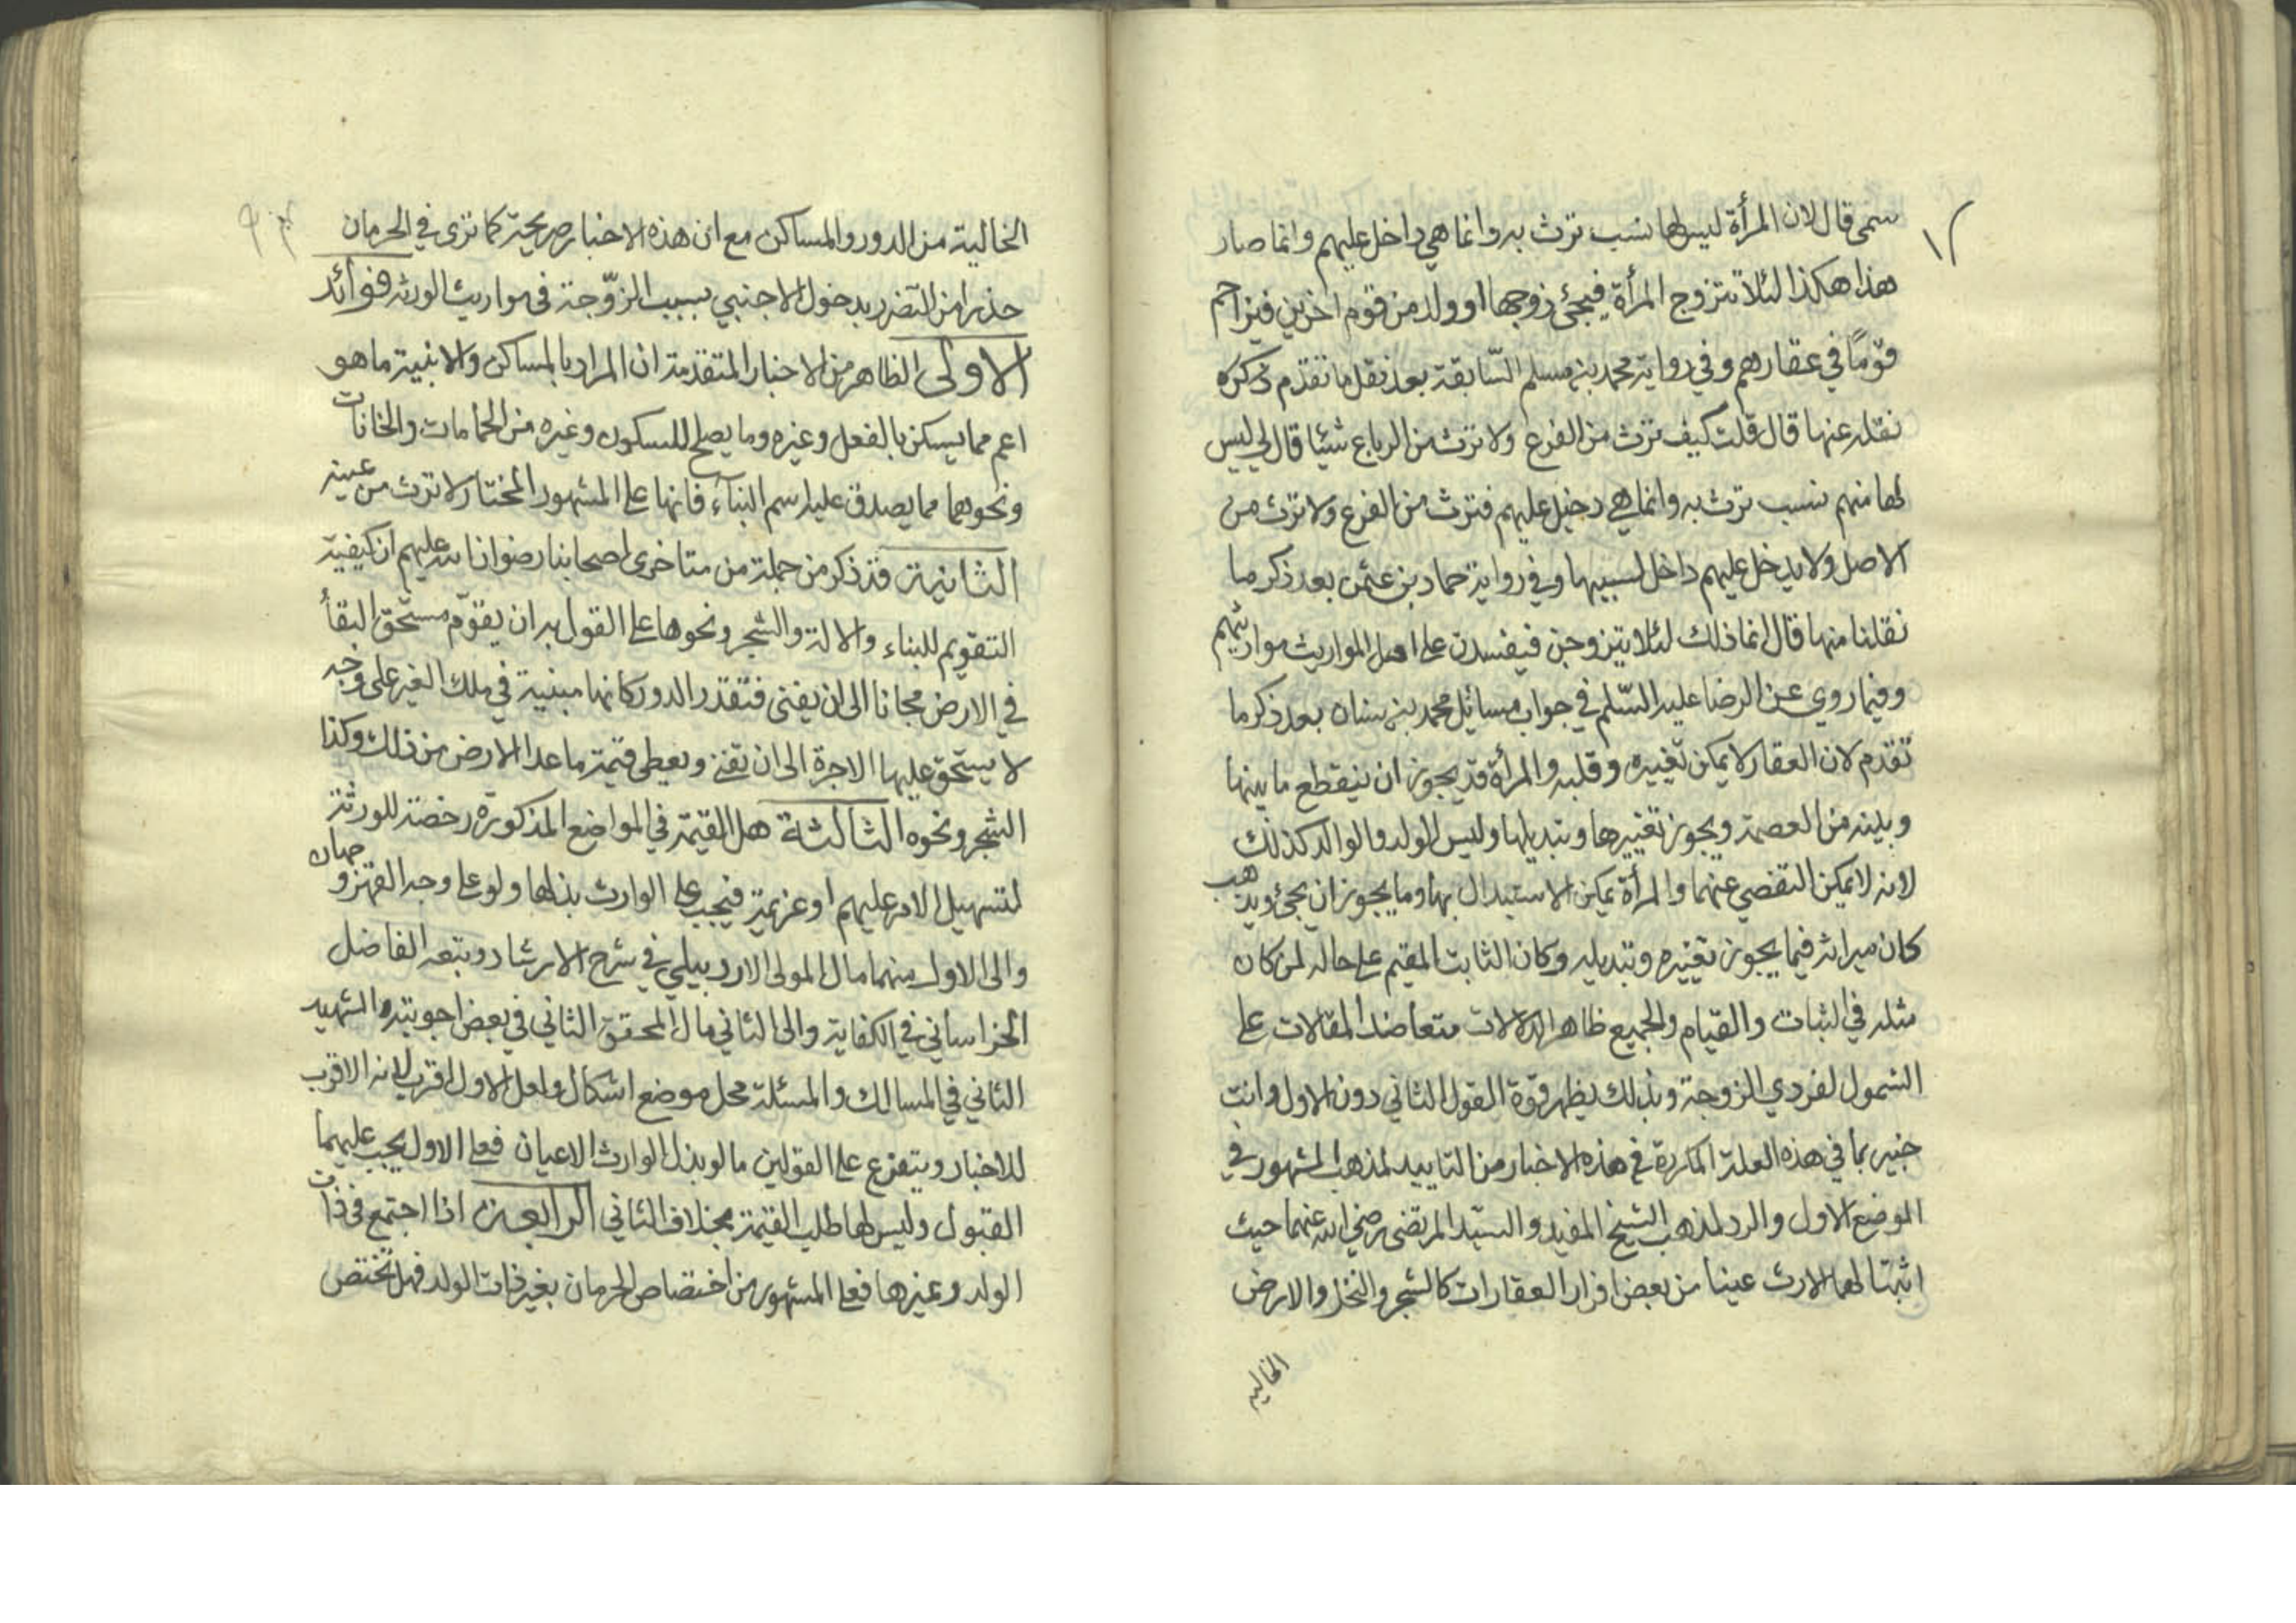 سمى قال لان المرأة ليس لها نسب ترث به وانما هي داخل عليهم وانما صار
هذا هكذا لئلا تتزوج المرأة فيجئ زوجها او ولد من قوم اخرين فيزاحم
قومًا في عقارهم وفي رواية محمد بن مسلم السّابقة بعد نقل ما تقدم ذكره
نقله عنها قال قلت كيف ترث من الفرع ولا ترث من الرباع شيئا قال لي ليس
لها منهم نسب ترث به وانما هي دخيل عليهم فترث من الفرع ولا ترث من
الاصل ولا يدخل عليهم داخل لسببها وفي رواية حماد بن عثمن بعد ذكر ما
نقلنا منها قال انما ذلك لئلا يتزوجن فيفسدن على اهل المواريث مواريثهم
وفيما روي عن الرضا عليه السّلم في جواب مسائل محمد بن سنان بعد ذكر ما
تقدم لان العقار لا يمكن تغييره وقلبه والمرأة قد يجوز ان ينقطع ما بينها
وبينه من العصمة ويجوز تغييرها وتبديلها وليس الولد والوالد كذلك
لانه لا يمكن التفصي عنهما والمرأة يمكن الاستبدال بها وما يجوز ان يجئ ويذهب
كان ميراثه فيما يجوز تغييره وتبديله وكان الثابت المقيم على حاله لمن كان
مثله في الثبات والقيام والجميع ظاهر الدلالات متعاضد المقالات على
الشمول لفردي الزوجة وبذلك يظهر قوة القول الثاني دون الاول وانت
خبير بما في هذه العلة المكررة في هذه الاخبار من التاييد لمذهب المشهور في
الموضع الاول والرد لمذهب الشيخ المفيد والسيّد المرتضى رضي الله عنهما حيث
اثبتا لها الارث عينا من بعض افراد العقارات كالشجر والنخل والارض
الخاليه
الخالية من الدور والمساكن مع ان هذه الاخبار صريحة كما ترى في الحرمان
حذرا من التضرر بدخول الاجنبي بسبب الزّوجة في مواريث الورثه فوائد
الاولى الظاهر من الاخبار المتقدمة ان المراد بالمساكن والابنية ما هو
اعم مما يسكن بالفعل وغيره وما يصلح للسكون وغيره من الحمامات والخانات
ونحوهما مما يصدق عليه اسم البناء فانها على المشهور المختار لا ترث من عينه
الثانية قد ذكر من جملة من متاخرى اصحابنا رضوان الله عليهم ان كيفية
التقويم للبناء والالة والشجر ونحوها على القول به ان يقوّم مستحق البقأ
في الارض مجانا الى ان يفنى فتقدر الدور كانها مبنية في ملك الغير على وجه
لا يستحق عليها الاجرة الى ان تفنى ويعطى قيمة ما عدا الارض من ذلك وكذا
الشجر ونحوه الثالثة هل القيمة في المواضع المذكورة رخصة للورثة
لتسهيل الامر عليهم او عزيمة فيجب على الوارث بذلها ولو على وجه القهر وجهان
والى الاول منهما مال المولى الاردبيلي في شرح الارشاد وتبعه الفاضل
الخراساني في الكفاية والى الثاني مال المحقق الثاني في بعض اجوبته والشهيد
الثاني في المسالك والمسئلة محل موضع اشكال ولعل الاول اقرب لانه الاقرب
للاخبار ويتفرع على القولين ما لو بذل الوارث الاعيان فعلى الاول يجب عليها
القبول وليس لها طلب القيمة بخلاف الثاني الرابعة اذا اجتمع في ذات
الولد وغيرها فعلى المشهور من اختصاص الحرمان بغير ذات الولد فهل تختص